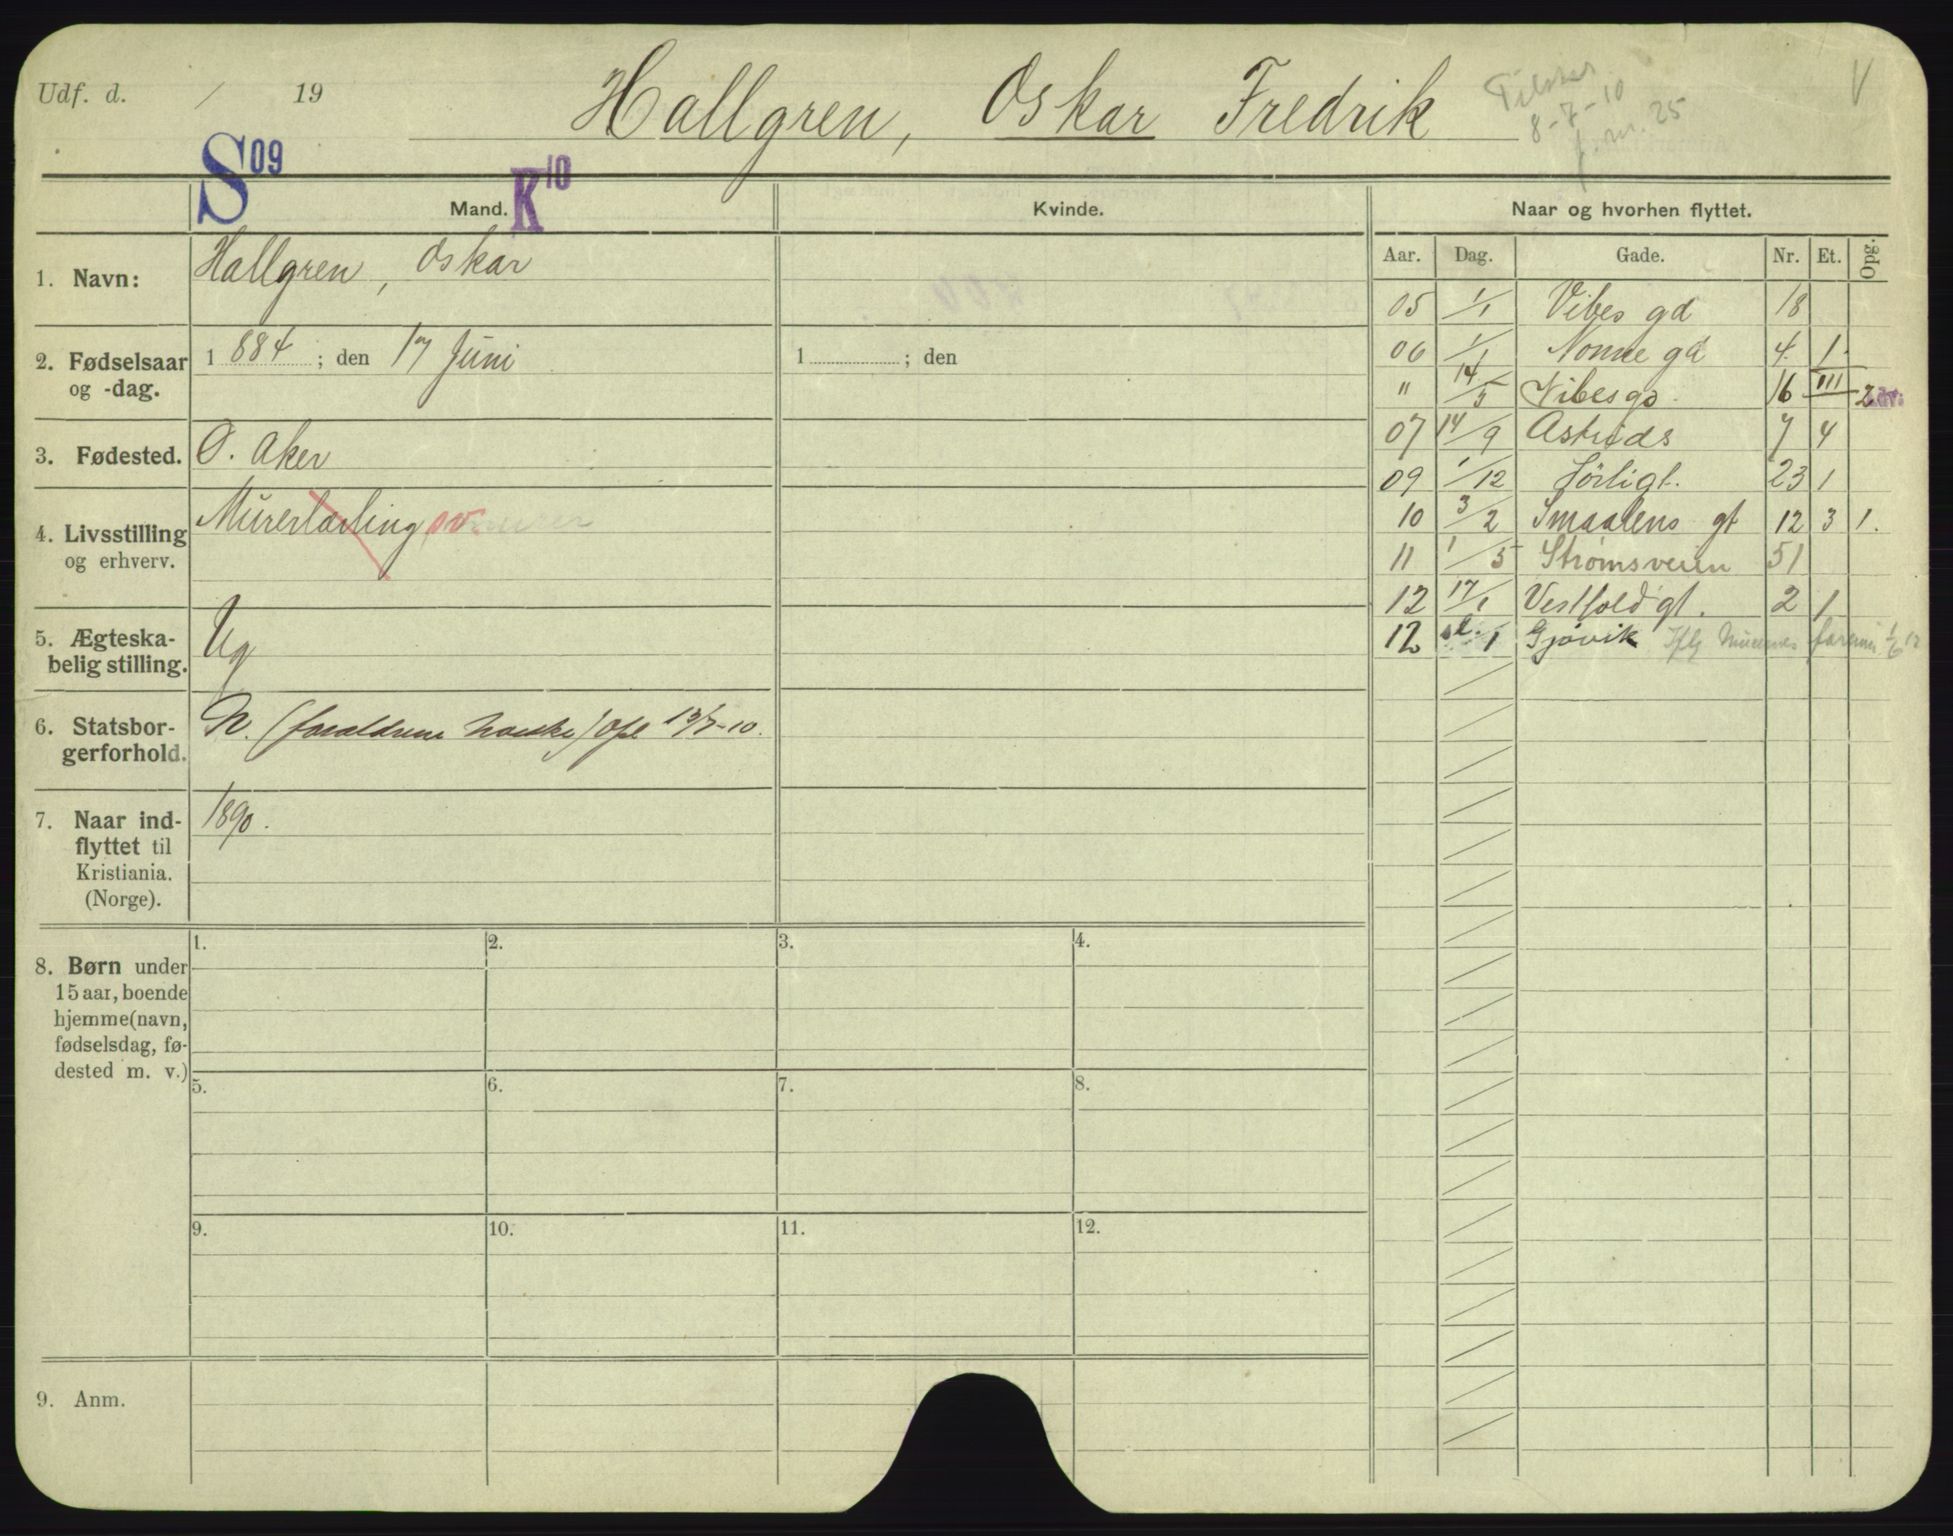 Udf. d. / 19
Hallgren, Oskar Fredrik
8-7-10
j. nr. 25
V
S 09
K 10
Mand.
Kvinde.
Naar og hvorhen flyttet.
Aar. Dag. Gade. Nr. Et. Opg.
1. Navn:
Hallgren, Oskar
2. Fødselsaar
og -dag.
1 884 ; den 17 Juni
1 ; den
3. Fødested.
Ø. Aker
4. Livsstilling
og erhverv.
Murerlærling sv. murer
5. Ægteska-
belig stilling.
Ug
6. Statsbor-
gerforhold.
N. (forældrene norske) opl 13/7-10.
7. Naar ind-
flyttet til
Kristiania.
(Norge).
1890.
05 1/1 Vibes gd 18
06 1/1 Nonne gd 4. 1.
" 14/5 Vibesga. 16 III 2
07 14/9 Astrids 7 4
09 1/12 Sörligt. 23 1
10 3/2 Smaalens gt 12 3 1.
11 1/5 Strømsveien 51
12 17/1 Vestfold gt. 2 1
12 /1 Gjøvik Iflg Murernes foreni 1/6 12
8. Børn under
15 aar, boende
hjemme (navn,
fødselsdag, fø-
dested m. v.)
1. 2. 3. 4.
5. 6. 7. 8.
9. 10. 11. 12.
9. Anm.